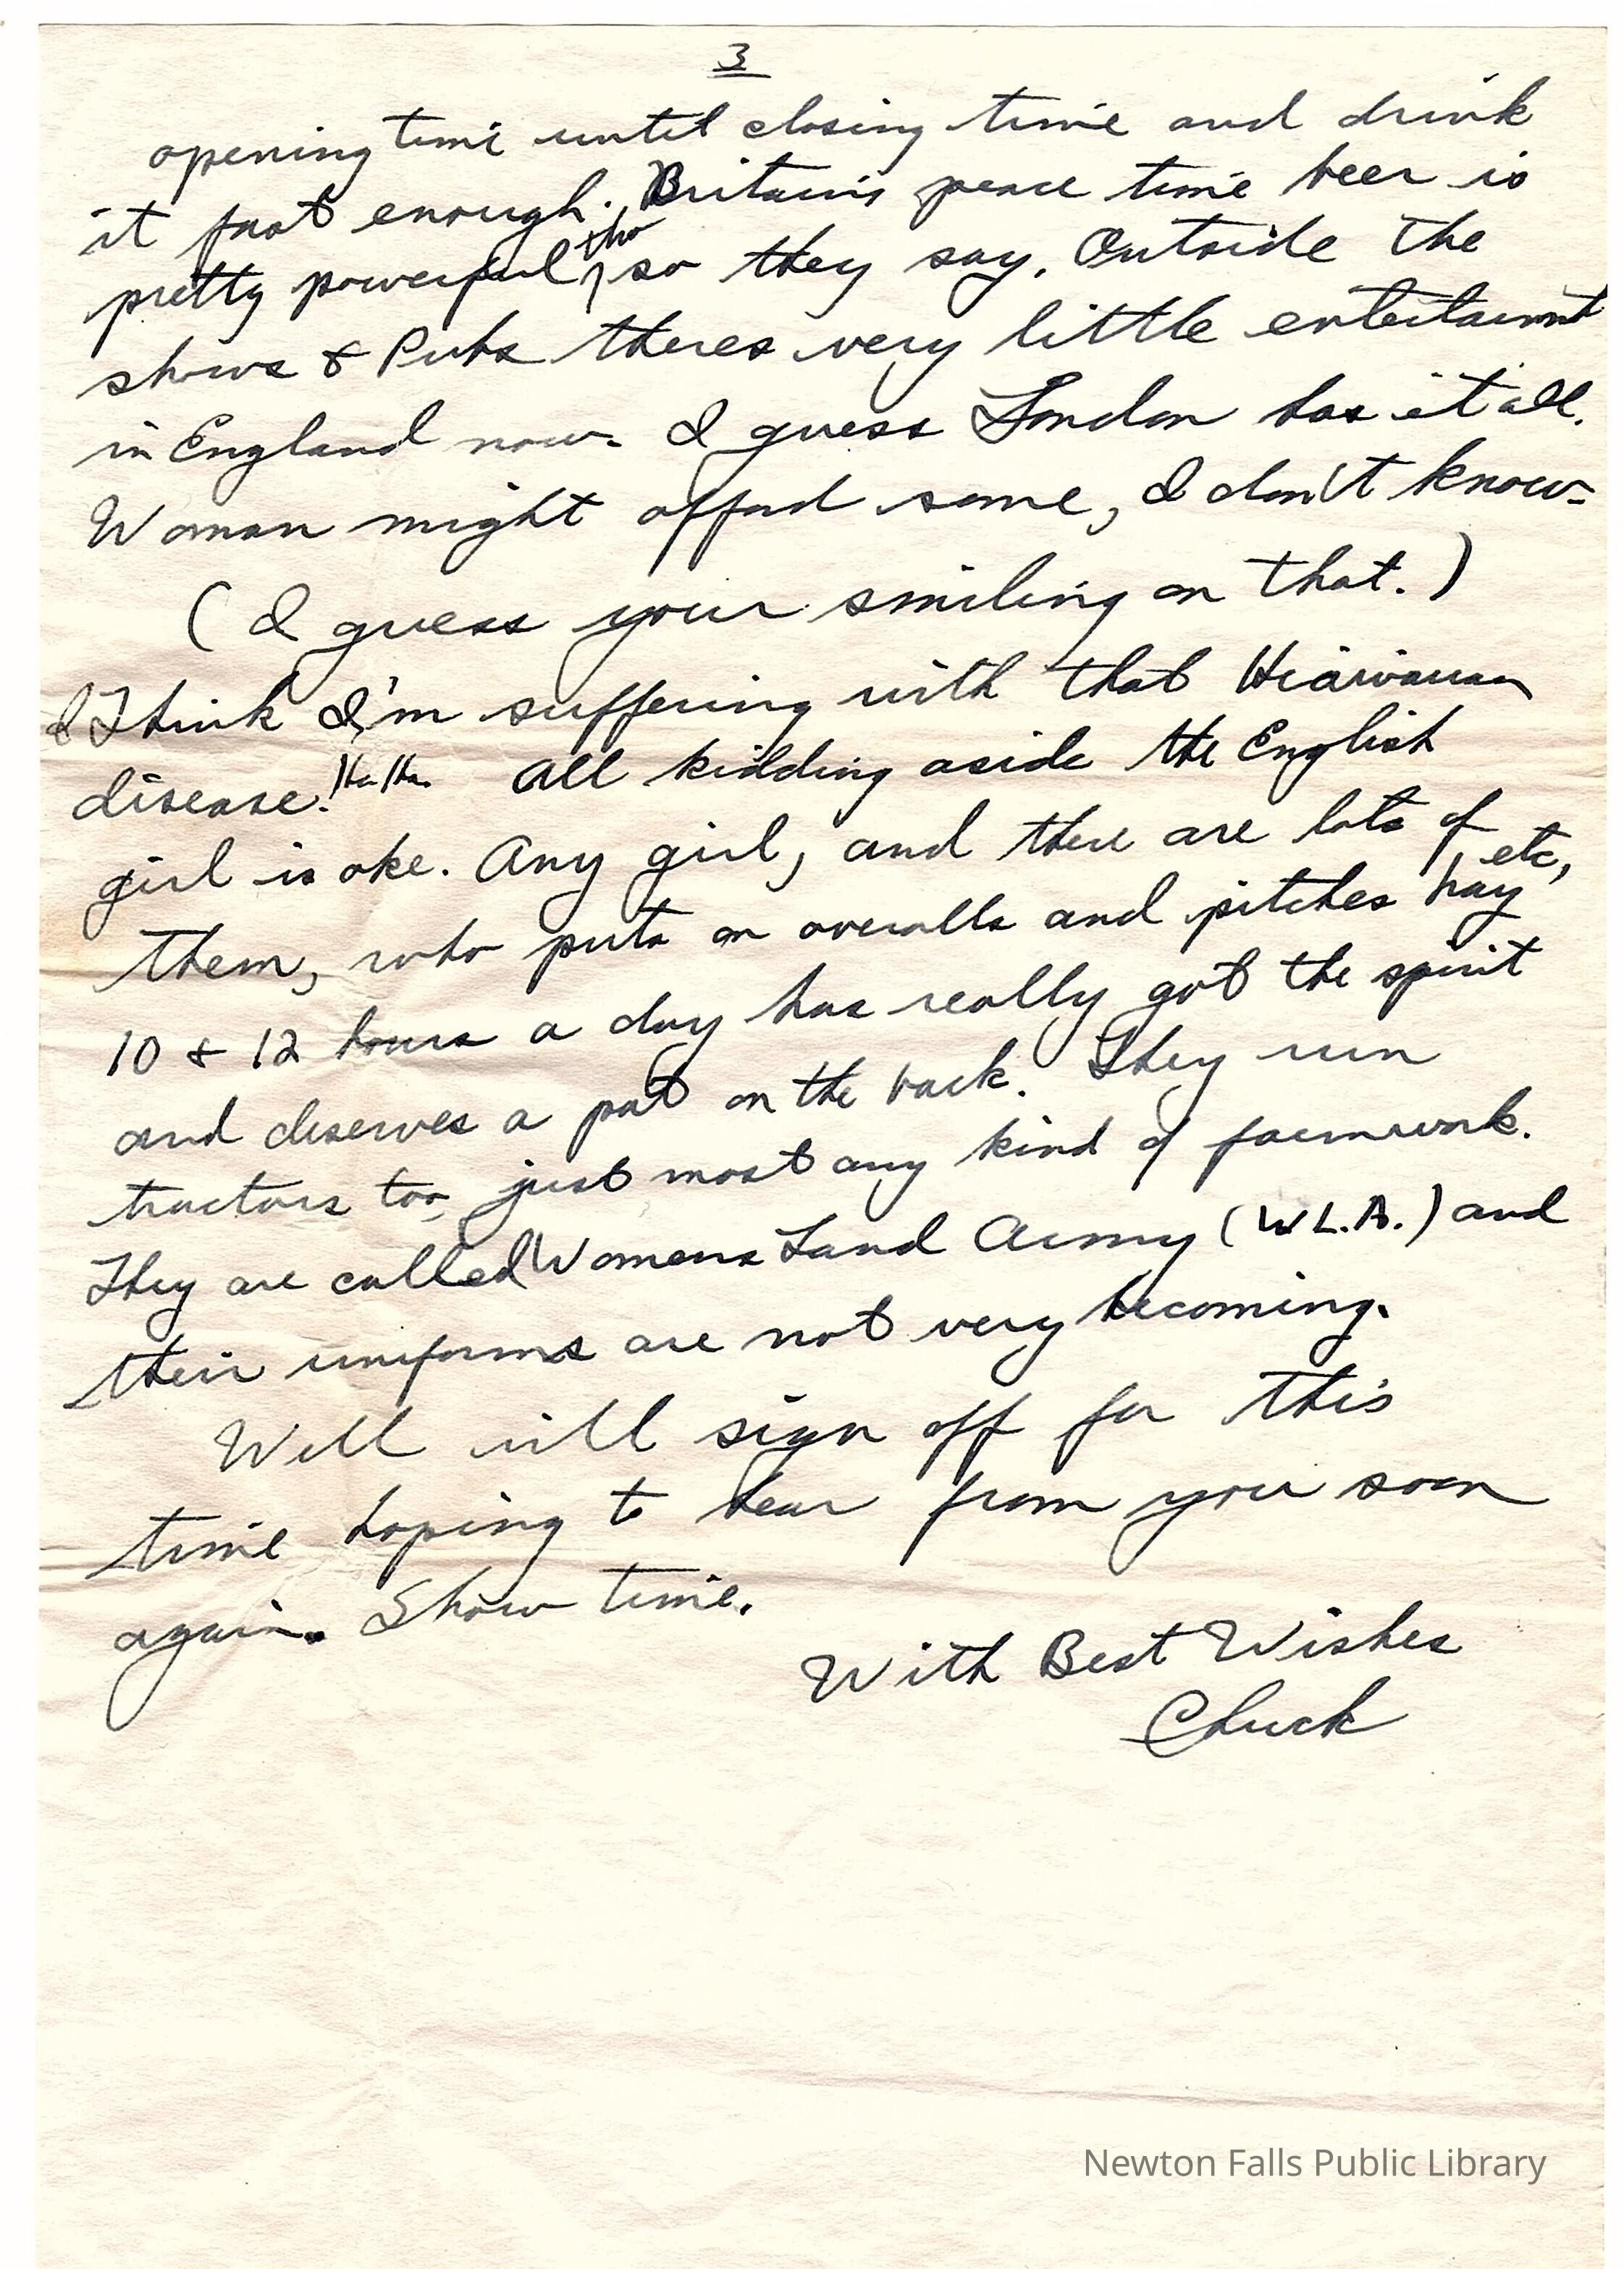 3
opening time until closing time and drink
it fast enough. Britain's peace time beer is
pretty powerful, tho so they say. Outside the
shows & Pubs theres very little entertainmt
in England now. I guess London has it all.
Woman might afford some, I don't know.
( I guess your smiling on that. )
I Think I'm suffering with that Hiawauan
disease! Ha Ha. All kidding aside the English
girl is oke. Any girl, and there are lots of
them, who puts on overalls and pitches hay, etc,
10 & 12 hours a day has really got the spirit
and deserves a pat on the back. They run
tractors too, just most any kind of farmwork.
They are called Womens Land Army (W.L.A.) and
their uniforms are not very becoming.
Well will sign off for this
time hoping to hear from you soon
again. Show time.
With Best Wishes
Chuck
Newton Falls Public Library